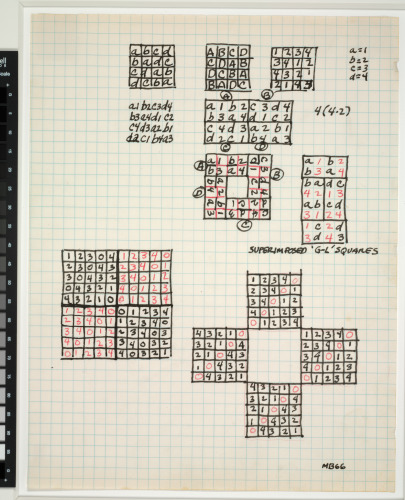 a b c d
b a d c
c d a b
d c b a
A B C D
C D A B
D C B A
B A D C
1 2 3 4
3 4 1 2
4 3 2 1
2 1 4 3
a=1
b=2
c=3
d=4
A B
a1b2c3d4
b3a4d1c2
c4d3a2b1
d2c1b4a3
a 1 b 2 c 3 d 4
b 3 a 4 d 1 c 2
c 4 d 3 a 2 b 1
d 2 c 1 b 4 a 3
4(4-2)
C D
A
B
D
C
a 1 b 2
b 3 a 4
b a d c
4 2 1 3
a b c d
3 1 2 4
1 c 2 d
3 d 4 3
SUPERIMPOSED "G-L" SQUARES
1 2 3 0 4 1 2 3 4 0
2 3 0 4 3 2 3 4 0 1
3 0 4 3 2 3 4 0 1 2
0 4 3 2 1 4 0 1 2 3
4 3 2 1 0 0 1 2 3 4
1 2 3 4 0 0 1 2 3 4
2 3 4 0 1 1 2 3 4 0
3 4 0 1 2 2 3 4 0 3
4 0 1 2 3 3 4 0 3 2
0 1 2 3 4 4 0 3 2 1
1 2 3 4 0
2 3 4 0 1
3 4 0 1 2
4 0 1 2 3
0 1 2 3 4
4 3 2 1 0
3 2 1 0 4
2 1 0 4 3
1 0 4 3 2
0 4 3 2 1
1 2 3 4 0
2 3 4 0 1
3 4 0 1 2
4 0 1 2 3
0 1 2 3 4
4 3 2 1 0
3 2 1 0 4
2 1 0 4 3
1 0 4 3 2
0 4 3 2 1
MB66